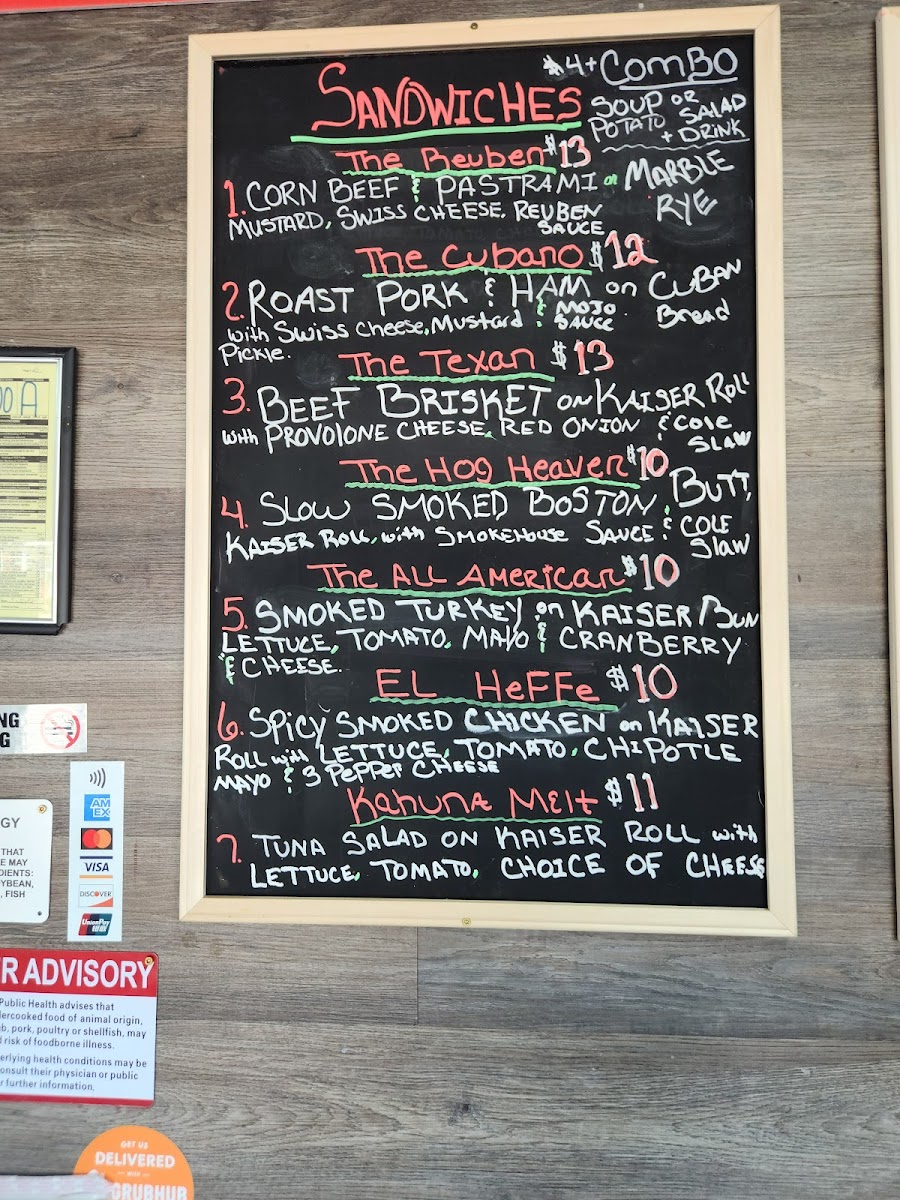 $4+ COMBO
SANDWICHES
SOUP OR SALAD
POTATO + DRINK
The Reuben $13
1. CORN BEEF & PASTRAMI on MARBLE RYE
MUSTARD, SWISS CHEESE, REUBEN
SAUCE
The Cubano $12
2. ROAST PORK & HAM on CUBAN Bread
with Swiss cheese, Mustard & MOJO SAUCE
Pickle.
The Texan $13
3. BEEF BRISKET on KAISER Roll
with PROVOLONE CHEESE, RED ONION & Cole Slaw
The HOG Heaven $10
4. SLOW SMOKED BOSTON BUTT,
KAISER Roll, with SMOKEHOUSE SAUCE & COLE Slaw
The ALL AMERICAN $10
5. SMOKED TURKEY on KAISER BUN
LETTUCE, TOMATO, MAYO & CRANBERRY
& CHEESE.
EL HeFFe $10
6. SPICY SMOKED CHICKEN on KAISER
ROLL with LETTUCE, TOMATO, CHIPOTLE
MAYO & 3 PePPer CHEESE
KahunA MElt $11
7. TUNA SALAD ON KAISER ROLL with
LETTUCE, TOMATO, CHOICE OF CHEESE
A
NG
G
AM
EX
VISA
DISCOVER
UnionPay
银联
GY
THAT
E MAY
DIENTS:
YBEAN,
, FISH
R ADVISORY
Public Health advises that
dercooked food of animal origin,
b, pork, poultry or shellfish, may
risk of foodborne illness.
erlying health conditions may be
onsult their physician or public
r further information.
GET US
DELIVERED
WITH
GRUBHUB